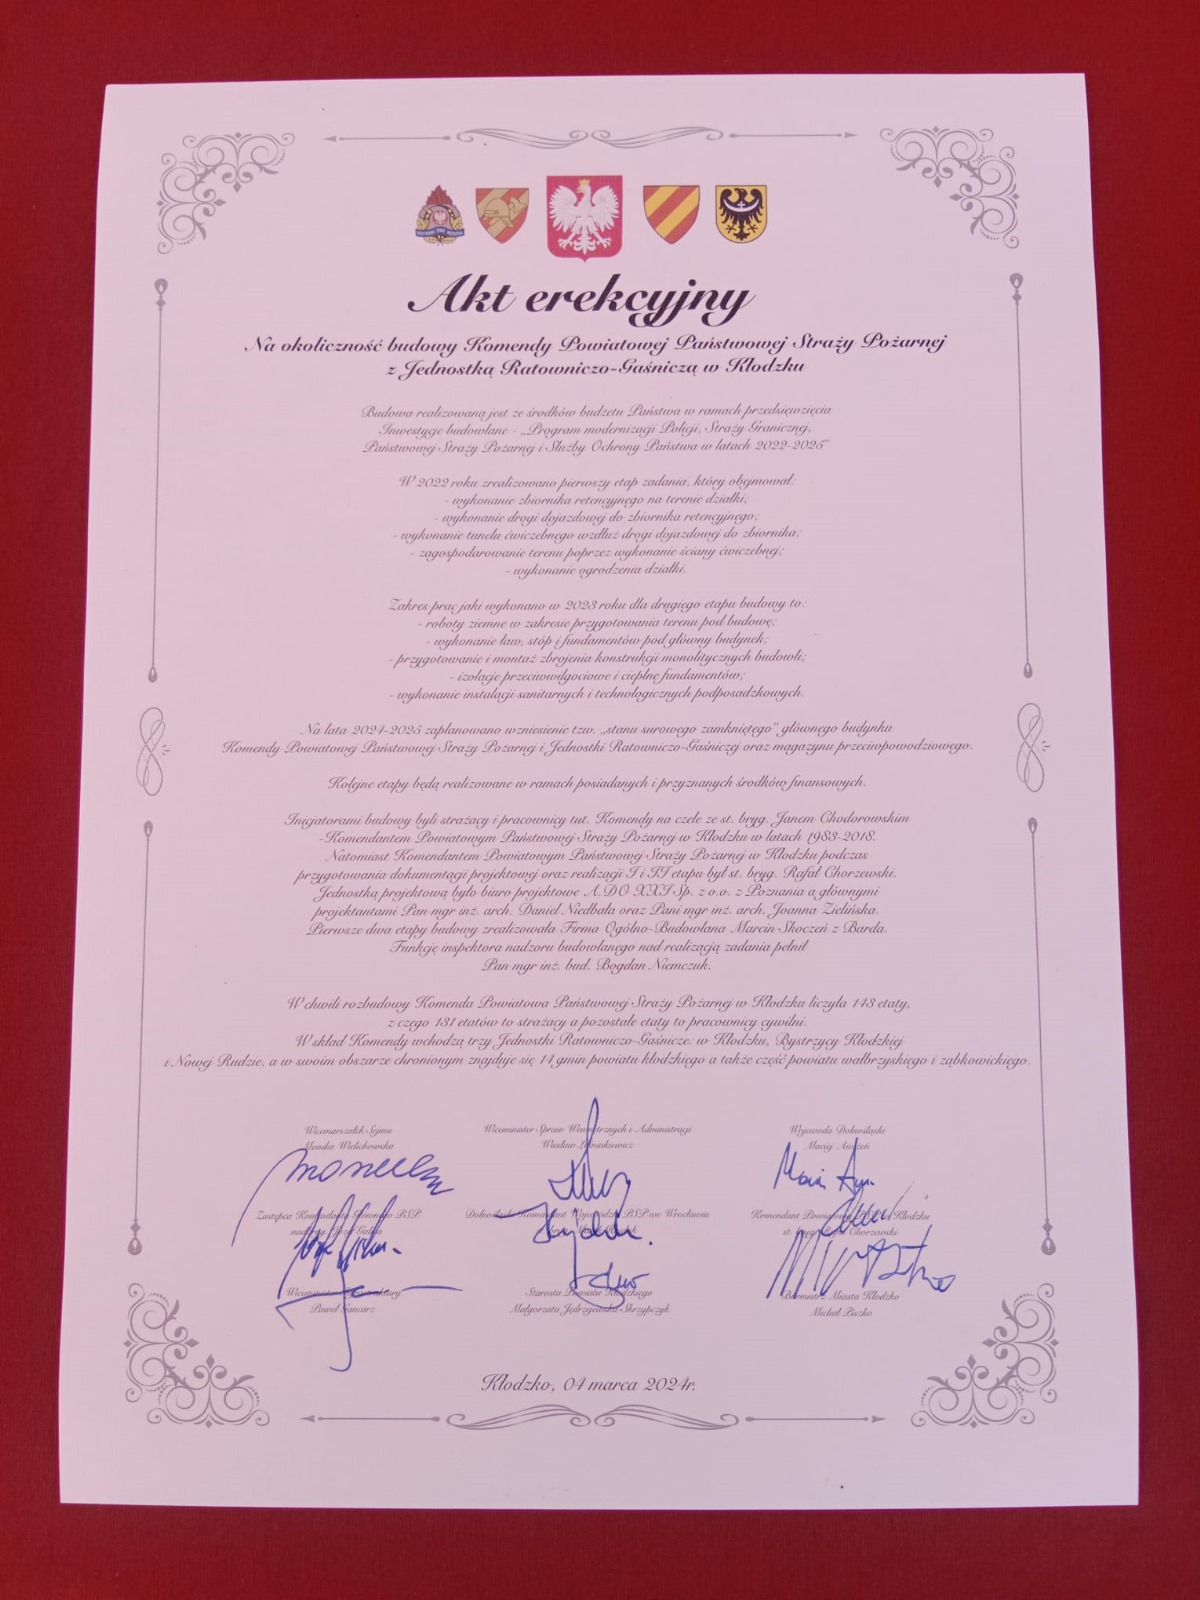 Akt erekcyjny
Na okoliczność budowy Komendy Powiatowej Państwowej Straży Pożarnej
z Jednostką Ratowniczo-Gaśniczą w Kłodzku
Budowa realizowana jest ze środków budżetu Państwa w ramach przedsięwzięcia
Inwestycje budowlane - „Program modernizacji Policji, Straży Granicznej,
Państwowej Straży Pożarnej i Służby Ochrony Państwa w latach 2022-2025”
W 2022 roku zrealizowano pierwszy etap zadania, który obejmował:
- wykonanie zbiornika retencyjnego na terenie działki;
- wykonanie drogi dojazdowej do zbiornika retencyjnego;
- wykonanie tunelu ćwiczebnego wzdłuż drogi dojazdowej do zbiornika;
- zagospodarowanie terenu poprzez wykonanie ściany ćwiczebnej;
- wykonanie ogrodzenia działki.
Zakres prac jaki wykonano w 2023 roku dla drugiego etapu budowy to:
- roboty ziemne w zakresie przygotowania terenu pod budowę;
- wykonanie ław, stóp i fundamentów pod główny budynek;
- przygotowanie i montaż zbrojenia konstrukcji monolitycznych budowli;
- izolacje przeciwwilgociowe i cieplne fundamentów;
- wykonanie instalacji sanitarnych i technologicznych podposadzkowych.
Na lata 2024-2025 zaplanowano wzniesienie tzw. „stanu surowego zamkniętego” głównego budynku
Komendy Powiatowej Państwowej Straży Pożarnej i Jednostki Ratowniczo-Gaśniczej oraz magazynu przeciwpowodziowego.
Kolejne etapy będą realizowane w ramach posiadanych i przyznanych środków finansowych.
Inicjatorami budowy byli strażacy i pracownicy tut. Komendy na czele ze st. bryg. Janem Chodorowskim
-Komendantem Powiatowym Państwowej Straży Pożarnej w Kłodzku w latach 1983-2018.
Natomiast Komendantem Powiatowym Państwowej Straży Pożarnej w Kłodzku podczas
przygotowania dokumentacji projektowej oraz realizacji I i II etapu był st. bryg. Rafał Chorzewski.
Jednostką projektową było biuro projektowe A.DO XXI Sp. z o.o. z Poznania a głównymi
projektantami Pan mgr inż. arch. Daniel Niedbała oraz Pani mgr inż. arch. Joanna Zielińska.
Pierwsze dwa etapy budowy zrealizowała Firma Ogólno-Budowlana Marcin Skoczeń z Barda.
Funkcję inspektora nadzoru budowlanego nad realizacją zadania pełnił
Pan mgr inż. bud. Bogdan Niemczuk.
W chwili rozbudowy Komenda Powiatowa Państwowej Straży Pożarnej w Kłodzku liczyła 143 etaty,
z czego 131 etatów to strażacy a pozostałe etaty to pracownicy cywilni.
W skład Komendy wchodzą trzy Jednostki Ratowniczo-Gaśnicze: w Kłodzku, Bystrzycy Kłodzkiej
i Nowej Rudzie, a w swoim obszarze chronionym znajduje się 14 gmin powiatu kłodzkiego a także część powiatu wałbrzyskiego i ząbkowickiego.
Wicemarszałek Sejmu Wiceminister Spraw Wewnętrznych i Administracji Wojewoda Dolnośląski
Monika Wielichowska Wiesław Leśniakiewicz Maciej Awiżeń
Zastępca Komendanta Głównego PSP Dolnośląski Komendant Wojewódzki PSP we Wrocławiu Komendant Powiatowy PSP w Kłodzku
st. bryg. Rafał Chorzewski
Starosta Powiatu Kłodzkiego Burmistrz Miasta Kłodzko
Paweł Gancarz Małgorzata Jędrzejewska-Skrzypczyk Michał Piszko
Kłodzko, 04 marca 2024r.